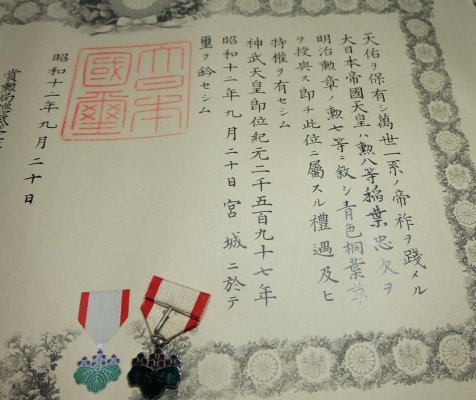 天佑ヲ保有シ萬世一系ノ帝祚ヲ踐メル
大日本帝國天皇ハ勲八等稲葉忠次ヲ
明治勲章ノ勲七等ニ敍シ青色桐葉章
ヲ授與ス即チ此位ニ屬スル禮遇及ヒ
特權ヲ有セシム
神武天皇即位紀元二千五百九十七年
昭和十二年九月二十日宮城ニ於テ
璽ヲ鈐セシム
大日本國璽
昭和十二年九月二十日
賞勲局總裁